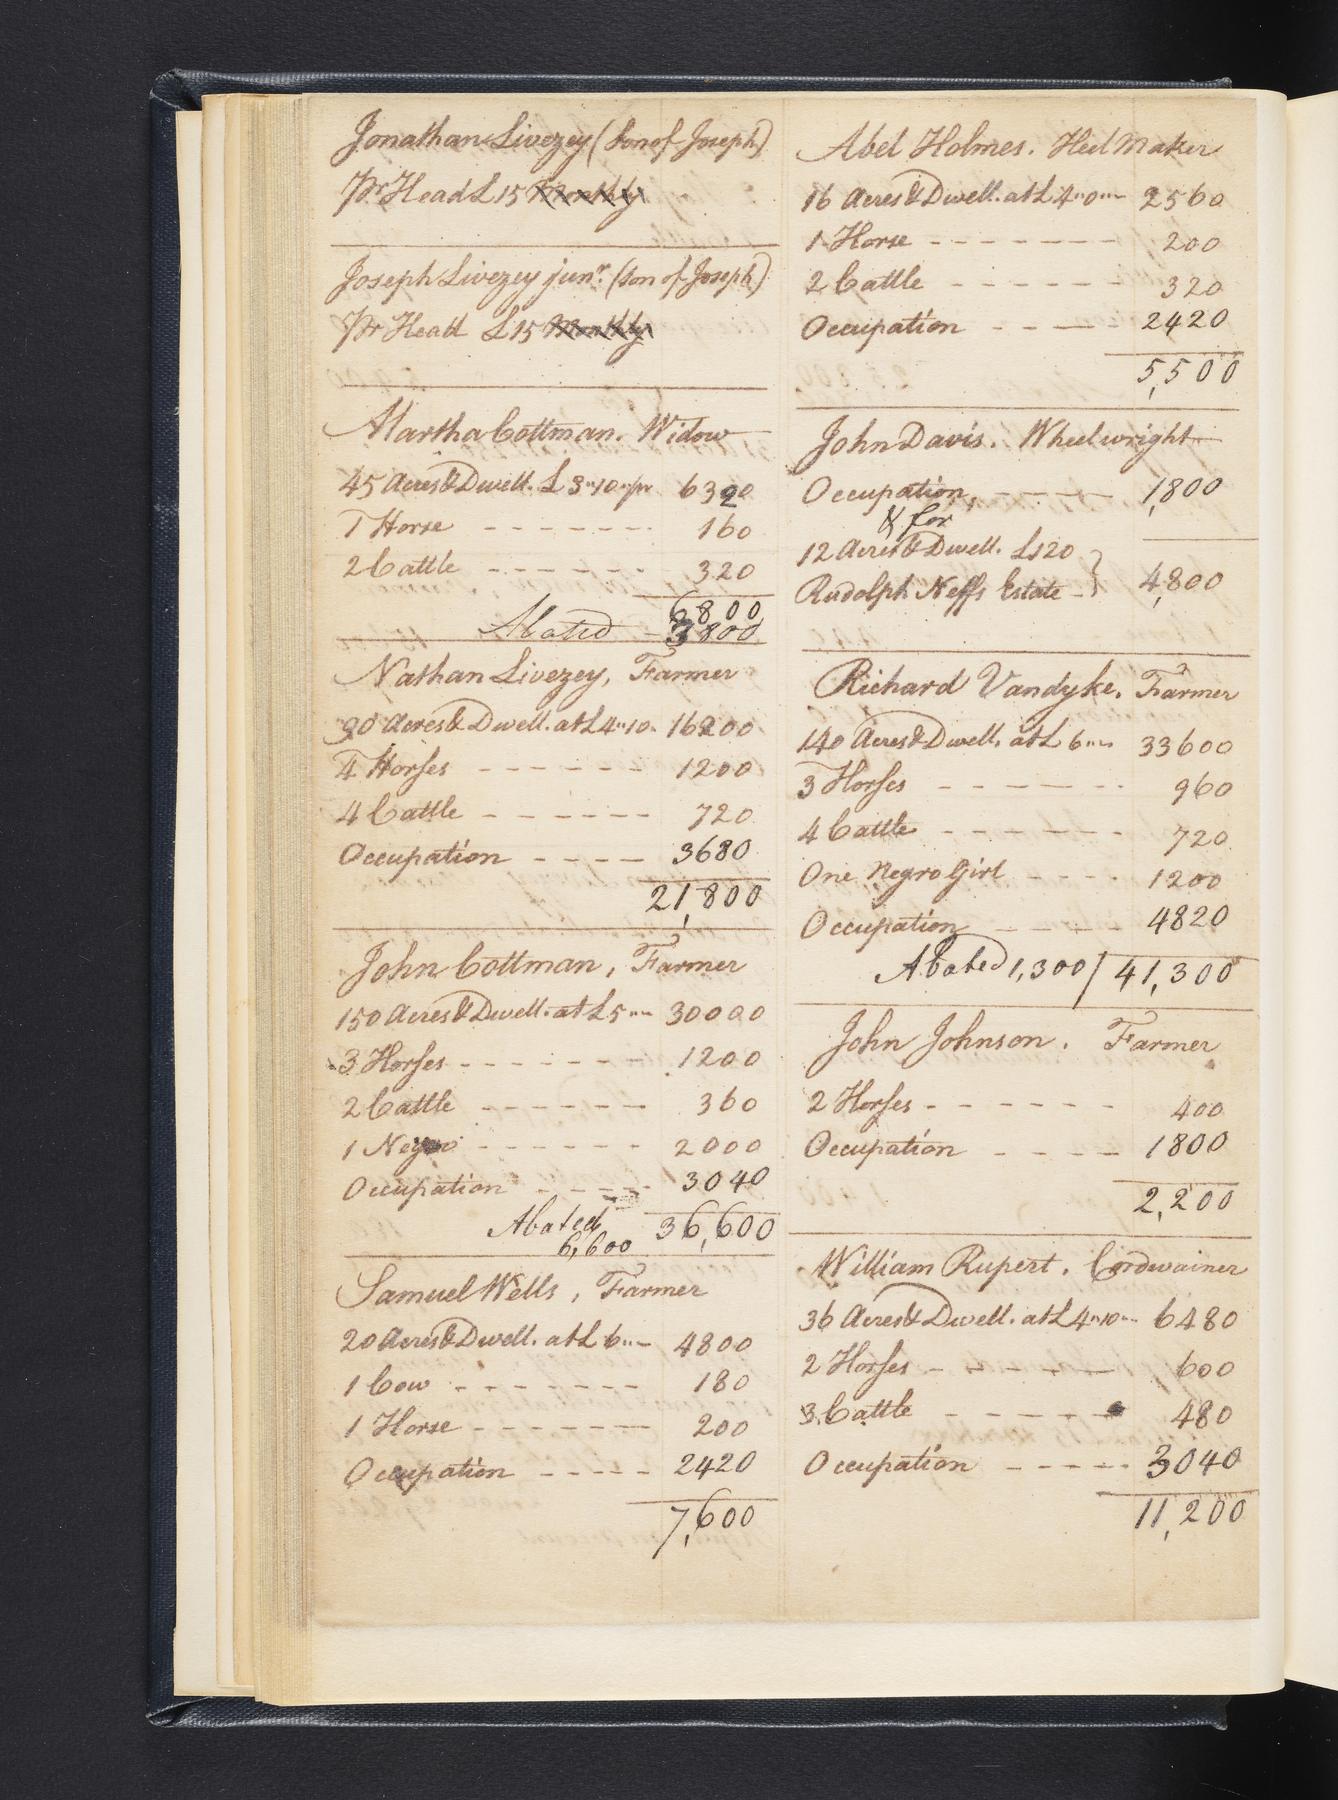 Jonathan Livezey (Son of Joseph)
Pr Head £15 Monthly
Joseph Livezey junr. (son of Joseph)
Pr Head £15 Monthly
Martha Cottman. Widow
45 Acres & Dwell. £3"10"pr 6320
1 Horse 160
2 Cattle 320
6800
Abated 3800
Nathan Livezey, Farmer
90 Acres & Dwell. at £4"10" 16200
4 Horses 1200
4 Cattle 720
Occupation 3680
21,800
John Cottman, Farmer
150 Acres & Dwell. at £5"" 30000
3 Horses 1200
2 Cattle 360
1 Negro 2000
Occupation 3040
Abated 36,600
6,600
Samuel Wells, Farmer
20 Acres & Dwell. at £6"" 4800
1 Cow 180
1 Horse 200
Occupation 2420
7,600
Abel Holmes. Heel Maker
16 Acres & Dwell. at £4"0" 2560
1 Horse 200
2 Cattle 320
Occupation 2420
5,500
John Davis. Wheelwright
Occupation 1,800
& for
12 Acres & Dwell. £120
Rudolph Neffs Estate 4,800
Richard Vandyke. Farmer
140 Acres & Dwell. at £6"" 33600
3 Horses 960
4 Cattle 720
One Negro Girl 1200
Occupation 4820
Abated 1,300 / 41,300
John Johnson. Farmer
2 Horses 400
Occupation 1800
2,200
William Rupert. Cordwainer
36 Acres & Dwell. at £4"10" 6480
2 Horses 600
3 Cattle 480
Occupation 3040
11,200